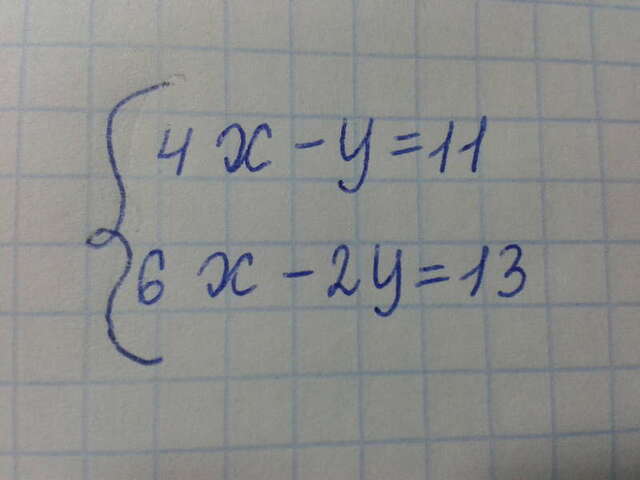 4x-y=11
6x-2y=13